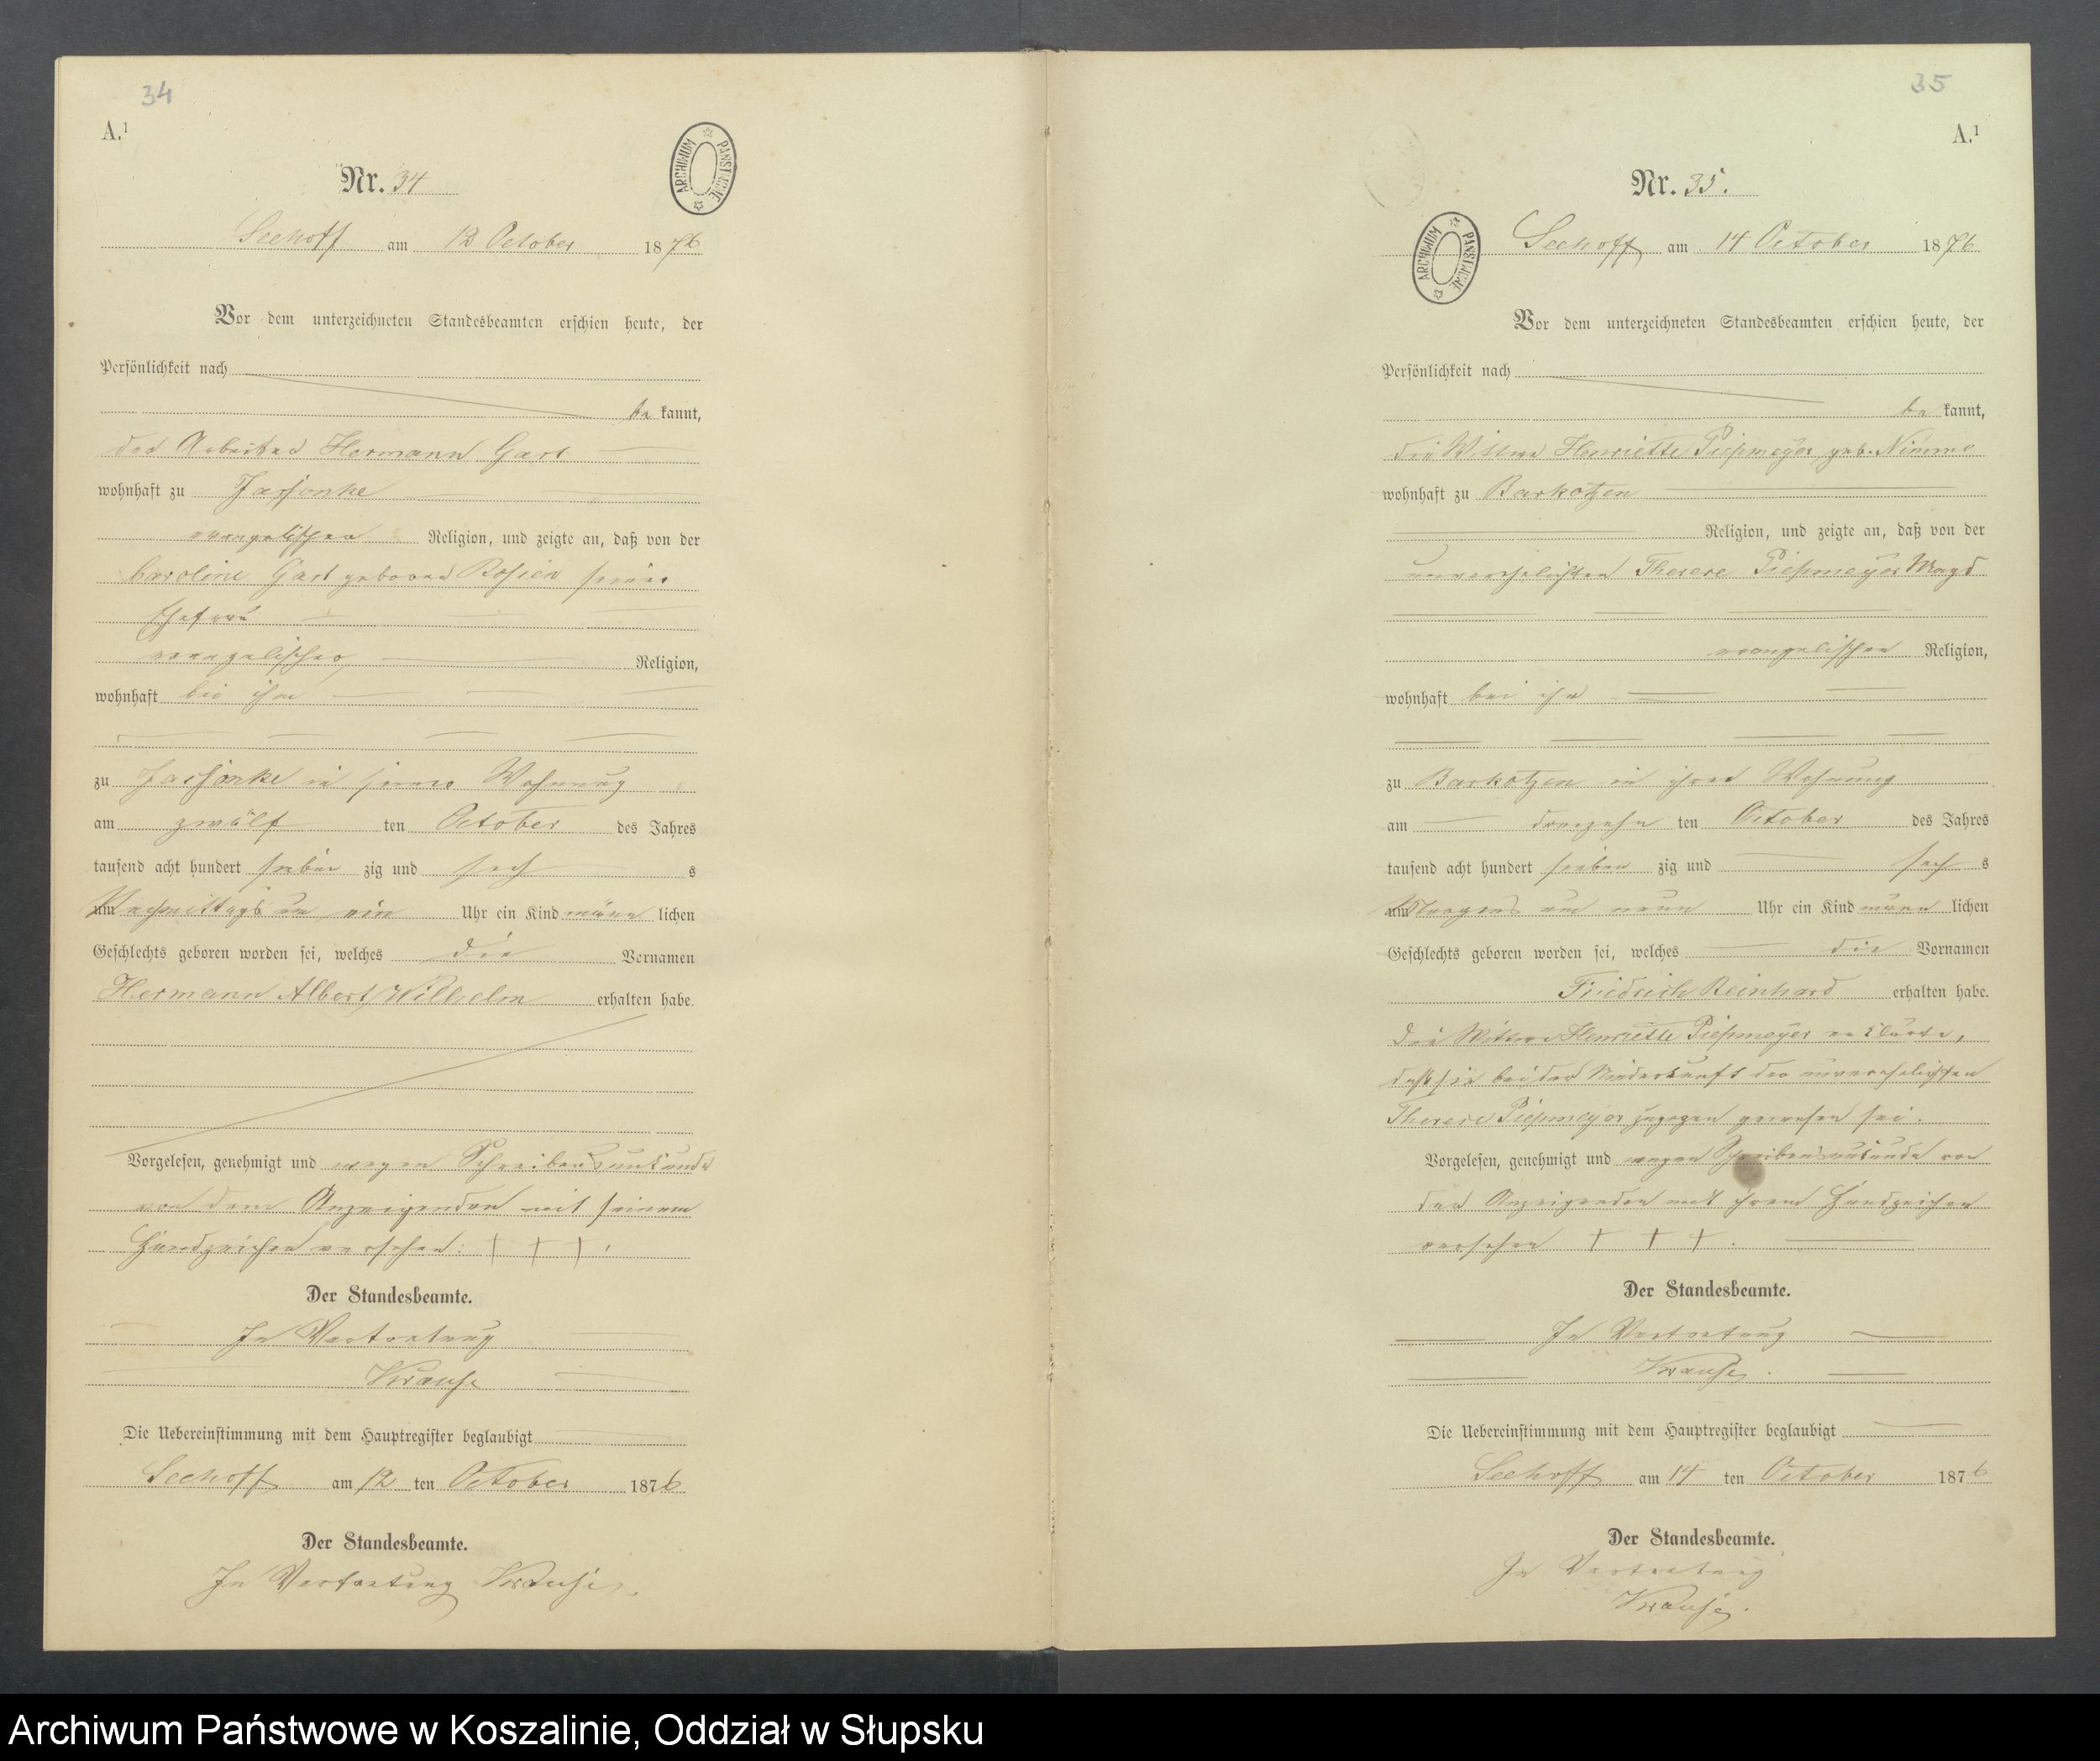 34
A.¹
ARCHIWUM PAŃSTWOWE
Nr. 34
Seehoff am 12 October 1876
Vor dem unterzeichneten Standesbeamten erschien heute, der
Persönlichkeit nach
be kannt,
der Arbeiter Hermann Gast
wohnhaft zu Jassonke
evangelischer Religion, und zeigte an, daß von der
Caroline Gast geboren seiner
Ehefrau
evangelischer Religion,
wohnhaft bei ihm
zu Jassonke in seiner Wohnung
am zwölf ten October des Jahres
tausend acht hundert sieben zig und sech s
um Nachmittags um ein Uhr ein Kind männ lichen
Geschlechts geboren worden sei, welches die Vornamen
Hermann Albert Wilhelm erhalten habe.
Vorgelesen, genehmigt und wegen Schreibensunkunde
von dem Anzeigenden mit seinem
Handzeichen versehen: + + +
Der Standesbeamte.
In Vertretung
Krause
Die Uebereinstimmung mit dem Hauptregister beglaubigt
Seehoff am 12 ten October 1876
Der Standesbeamte.
In Vertretung Krause.
35
A.¹
Nr. 35.
ARCHIWUM PAŃSTWOWE
Seehoff am 14 October 1876
Vor dem unterzeichneten Standesbeamten erschien heute, der
Persönlichkeit nach
be kannt,
die Wittwe Henriette Piepmeyer geb. Nimmo
wohnhaft zu Barkotzen
Religion, und zeigte an, daß von der
unverehelichten Therese Piepmeyer Magd
evangelischen Religion,
wohnhaft bei ihr
zu Barkotzen in ihrer Wohnung
am dreizehn ten October des Jahres
tausend acht hundert sieben zig und sech s
um Morgens um neun Uhr ein Kind männ lichen
Geschlechts geboren worden sei, welches die Vornamen
Friedrich Reinhard erhalten habe.
Die Wittwe Henriette Piepmeyer erklärte,
daß sie bei der Niederkunft der unverehelichten
Therese Piepmeyer zugegen gewesen sei.
Vorgelesen, genehmigt und wegen Schreibensunkunde von
der Anzeigenden mit ihrem Handzeichen
versehen + + +.
Der Standesbeamte.
In Vertretung
Krause.
Die Uebereinstimmung mit dem Hauptregister beglaubigt
Seehoff am 14 ten October 1876
Der Standesbeamte.
In Vertretung
Krause.
Archiwum Państwowe w Koszalinie, Oddział w Słupsku